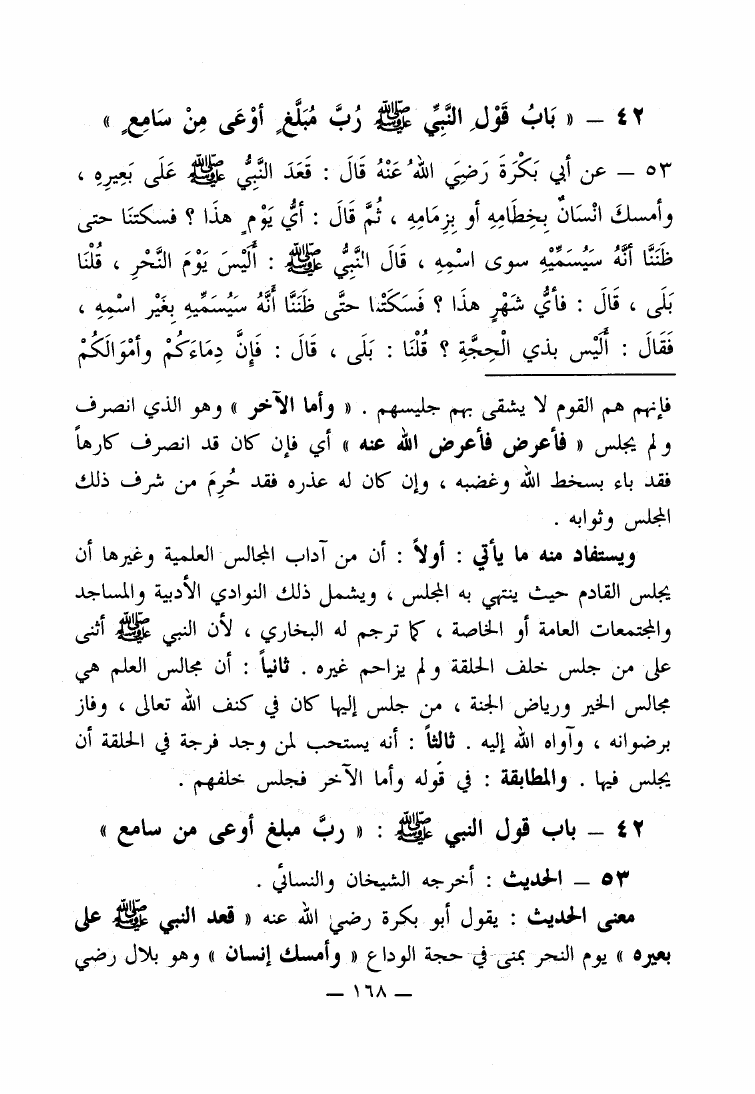 ٤٢ – « بَابُ قَوْلِ النَّبِيِّ ﷺ رُبَّ مُبَلَّغٍ أوْعَى مِنْ سَامِعٍ »
٥٣ – عن أبي بَكْرَةَ رَضِيَ اللهُ عَنْهُ قَالَ : قَعَدَ النَّبِيُّ ﷺ عَلَى بَعِيرِهِ ،
وأمسكَ انْسَانٌ بِخِطَامِهِ أو بِزِمَامِهِ ، ثُمَّ قَالَ : أيُّ يَوْمٍ هذَا ؟ فسكتنَا حتى
ظَنَنَّا أنَّهُ سَيُسَمِّيْهِ سوى اسْمِهِ ، قَالَ النَّبِيُّ ﷺ : أَلَيْسَ يَوْمَ النَّحْرِ ، قُلْنَا
بَلَى ، قَالَ : فأيُّ شَهْرٍ هذَا ؟ فَسَكَتْنا حتَّى ظَنَنَّا أنَّهُ سَيُسَمِّيهِ بِغَيْر اسْمِهِ ،
فَقَالَ : أَلَيْس بذي الْحِجَّةِ ؟ قُلْنَا : بَلَى ، قَالَ : فَإِنَّ دِمَاءَكُمْ وأمْوَالَكُمْ
فإنهم هم القوم لا يشقى بهم جليسهم . « وأما الآخر » وهو الذي انصرف
ولم يجلس « فأعرض فأعرض الله عنه » أي فإن كان قد انصرف كارهاً
فقد باء بسخط الله وغضبه ، وإن كان له عذره فقد حُرِمَ من شرف ذلك
المجلس وثوابه .
ويستفاد منه ما يأتي : أولاً : أن من آداب المجالس العلمية وغيرها أن
يجلس القادم حيث ينتهي به المجلس ، ويشمل ذلك النوادي الأدبية والمساجد
والمجتمعات العامة أو الخاصة ، كما ترجم له البخاري ، لأن النبي ﷺ أثنى
على من جلس خلف الحلقة ولم يزاحم غيره . ثانياً : أن مجالس العلم هي
مجالس الخير ورياض الجنة ، من جلس إليها كان في كنف الله تعالى ، وفاز
برضوانه ، وآواه الله إليه . ثالثاً : أنه يستحب لمن وجد فرجة في الحلقة أن
يجلس فيها . والمطابقة : في قوله وأما الآخر فجلس خلفهم .
٤٢ – باب قول النبي ﷺ : « ربَّ مبلغ أوعى من سامع »
٥٣ – الحديث : أخرجه الشيخان والنسائي .
معنى الحديث : يقول أبو بكرة رضي الله عنه « قعد النبي ﷺ على
بعيره » يوم النحر بمنى في حجة الوداع « وأمسك إنسان » وهو بلال رضي
– ١٦٨ –